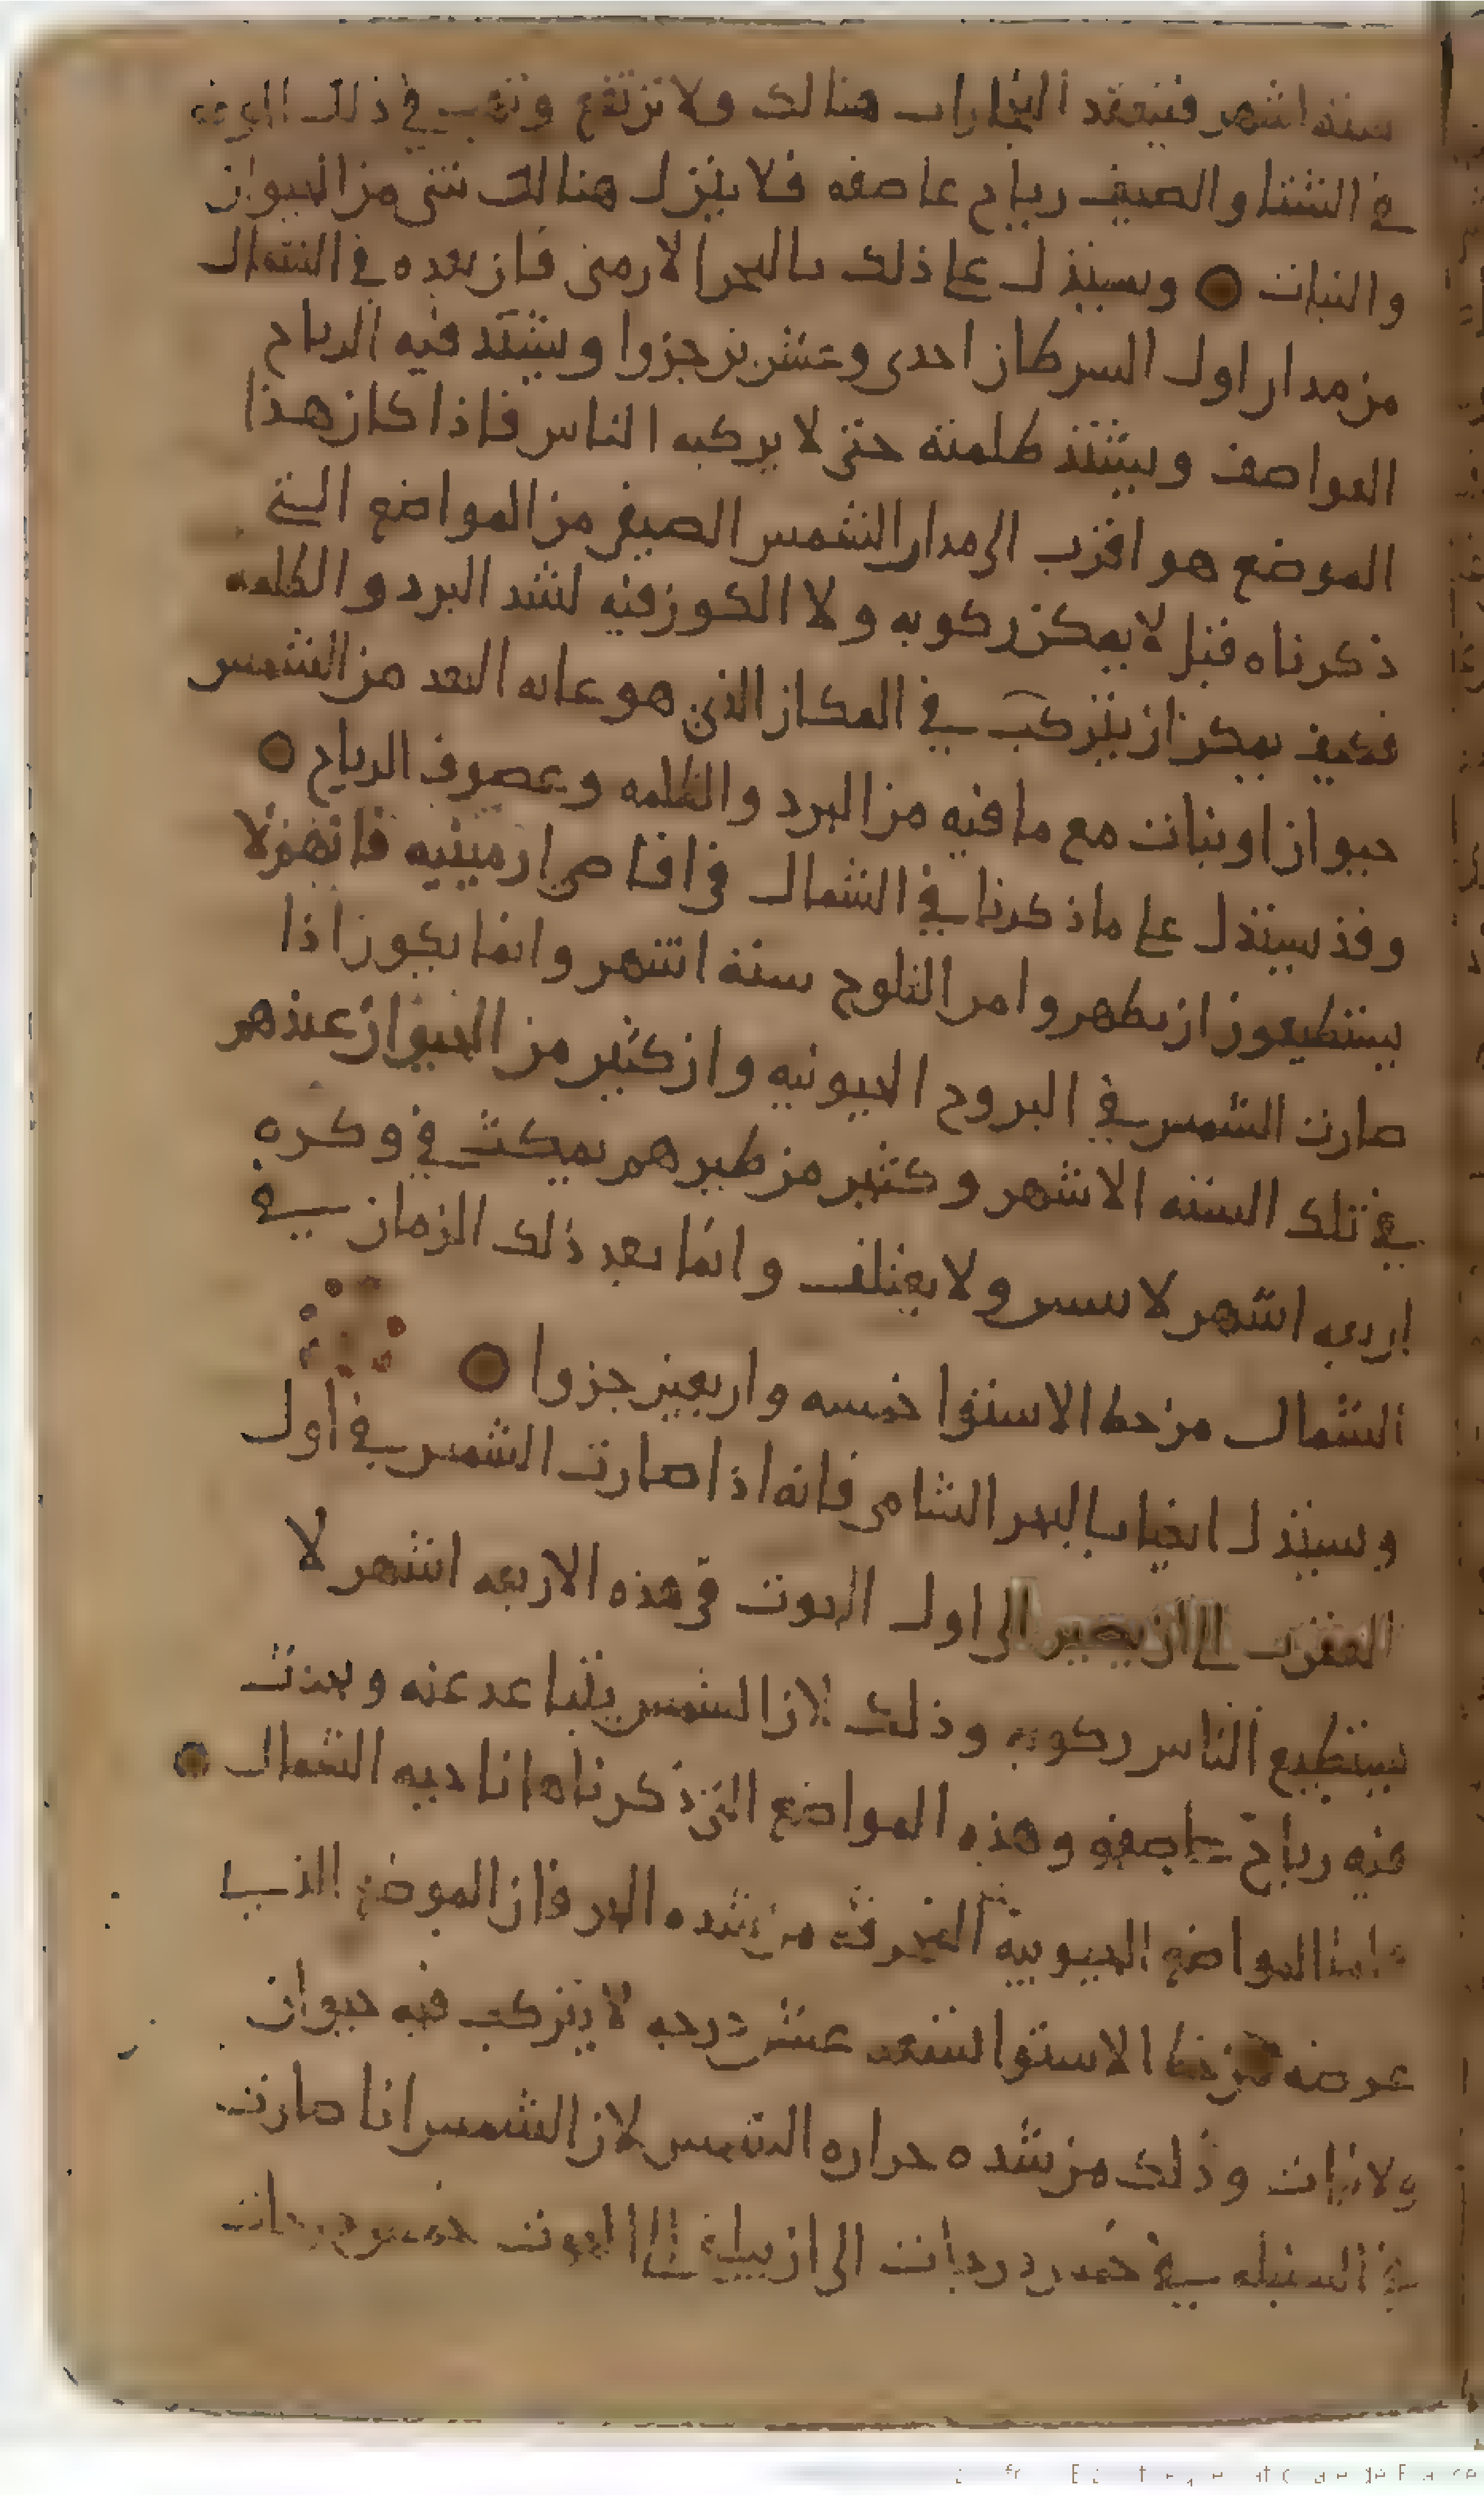 ستة اشهر فتنعقد البخارات هنالك ولا ترتفع وتهب في ذلك الموضع
في الشتا والصيف رياح عاصفه فلا ينزل هنالك شي من الحيوان
والنبات ○ ويستدل على ذلك بالبحر الارمني فان بعده في الشمال
من مدار اول السرطان احدى وعشرين جزوا ويشتد فيه الرياح
العواصف ويشتد ظلمته حتى لا يركبه الناس فاذا كان هذا
الموضع هو اقرب الى مدار الشمس الصيفي من المواضع التي
ذكرناه قبل لا يمكن ركوبه ولا الكون فيه لشد البرد والظلمه
فكيف يمكن ان يتركب في المكان الذي هو غايه البعد من الشمس
حيوان او نبات مع ما فيه من البرد والظلمه وعصوف الرياح ○
وقد يستدل على ما ذكرنا في الشمال في اقاصي ارمينيه فانهم لا
يستطيعون ان يظهروا من الثلوج ستة اشهر وانما يكون اذا
صارت الشمس في البروج الجنوبيه وان كثير من الحيوان عندهم
في تلك الستة الاشهر وكثير من طيرهم يمكث في وكره
اربعه اشهر لا ولا يعتلف وانما بعد ذلك الزمان في
الشمال من خط الاستوا خمسه واربعين جزوا ○
ويستدل ايضا بالبحر الشامي فانه اذا صارت الشمس في اول
العقرب الى ان يصير الى اول الحوت في هذه الاربعه اشهر لا
يستطيع الناس ركوبه وذلك لان الشمس يتباعد عنه ويحدث
فيه رياح عاصفه وهذه المواضع التي ذكرناها ناحيه الشمال ○
واما المواضع الجنوبية المحرقه من شده الحر فان الموضع الذي
عرضه من خط الاستوا تسعه عشر درجه لا يتركب فيه حيوان
ولا نبات وذلك من شده حراره الشمس لان الشمس اذا صارت
في السنبله في خمس درجات الى ان يبلغ الى الحوت خمس درجات